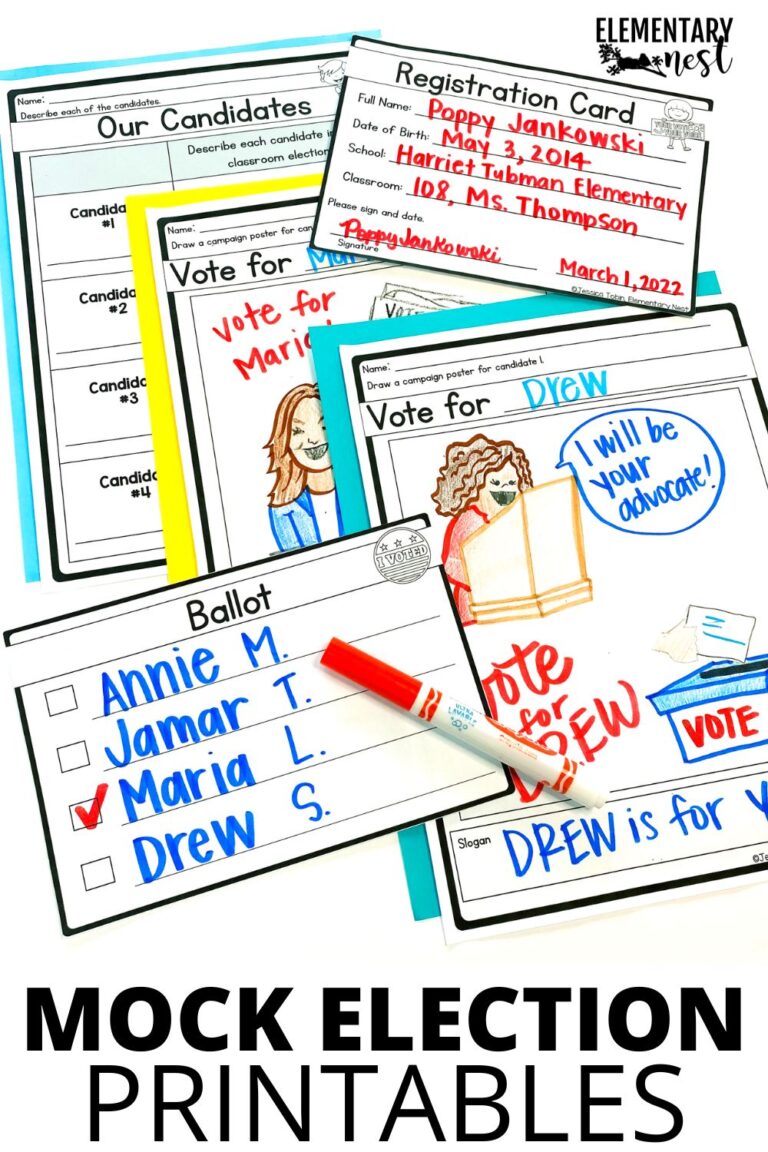 ELEMENTARY
nest
Name:
Describe each of the candidates.
Our Candidates
Describe each candidate in
classroom election
#1
#2
#3
#4
Registration Card
Full Name: Poppy Jankowski
Date of Birth: May 3, 2014
School: Harriet Tubman Elementary
Classroom: 108, Ms. Thompson
Please sign and date.
Poppy Jankowski
Signature
March 1, 2022
©Jessica Tobin, Elementary Nest
Name:
Draw a campaign poster for
Vote for
Vote for
Name:
Draw a campaign poster for candidate 1.
Vote for Drew
I will be
your
advocate!
Vote
for
DREW
VOTE
Slogan DREW is for
I VOTED
Ballot
Annie M.
Jamar T.
Maria L.
Drew S.
MOCK ELECTION
PRINTABLES